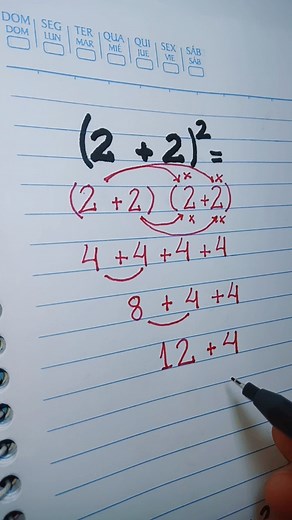 DOM SEG TER QUA QUI SEX SÁB
DOM LUN MAR MIÉ JUE VIE SÁB
(2 + 2)² =
(2 + 2) (2 + 2)
4 + 4 + 4 + 4
8 + 4 + 4
12 + 4